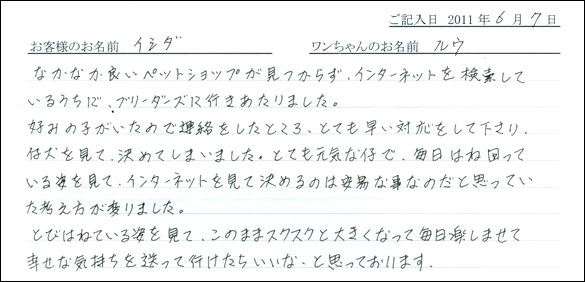 ご記入日 2011年6月7日
お客様のお名前 イシダ ワンちゃんのお名前 ルウ
なかなか良いペットショップが見つからず、インターネットを検索して
いるうちに、ブリーダーズに行きあたりました。
好みの子がいたので連絡をしたところ、とても早い対応をして下さり、
仔犬を見て、決めてしまいました。とても元気な仔で、毎日はね回って
いる姿を見て、インターネットを見て決めるのは安易な事なのだと思ってい
た考え方が変りました。
とびはねている姿を見て、このままスクスクと大きくなって毎日楽しませて
幸せな気持ちを送って行けたらいいな、と思っております。